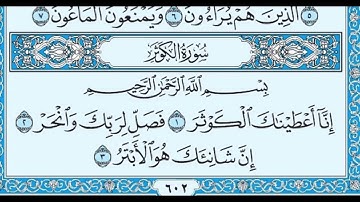 ٥ الَّذِينَ هُمْ يُرَآءُونَ ٦ وَيَمْنَعُونَ الْمَاعُونَ ٧
سُورَةُ الْكَوْثَرِ
بِسْمِ اللَّهِ الرَّحْمَٰنِ الرَّحِيمِ
إِنَّآ أَعْطَيْنَاكَ الْكَوْثَرَ ١ فَصَلِّ لِرَبِّكَ وَانْحَرْ ٢
إِنَّ شَانِئَكَ هُوَ الْأَبْتَرُ ٣
٦٠٢